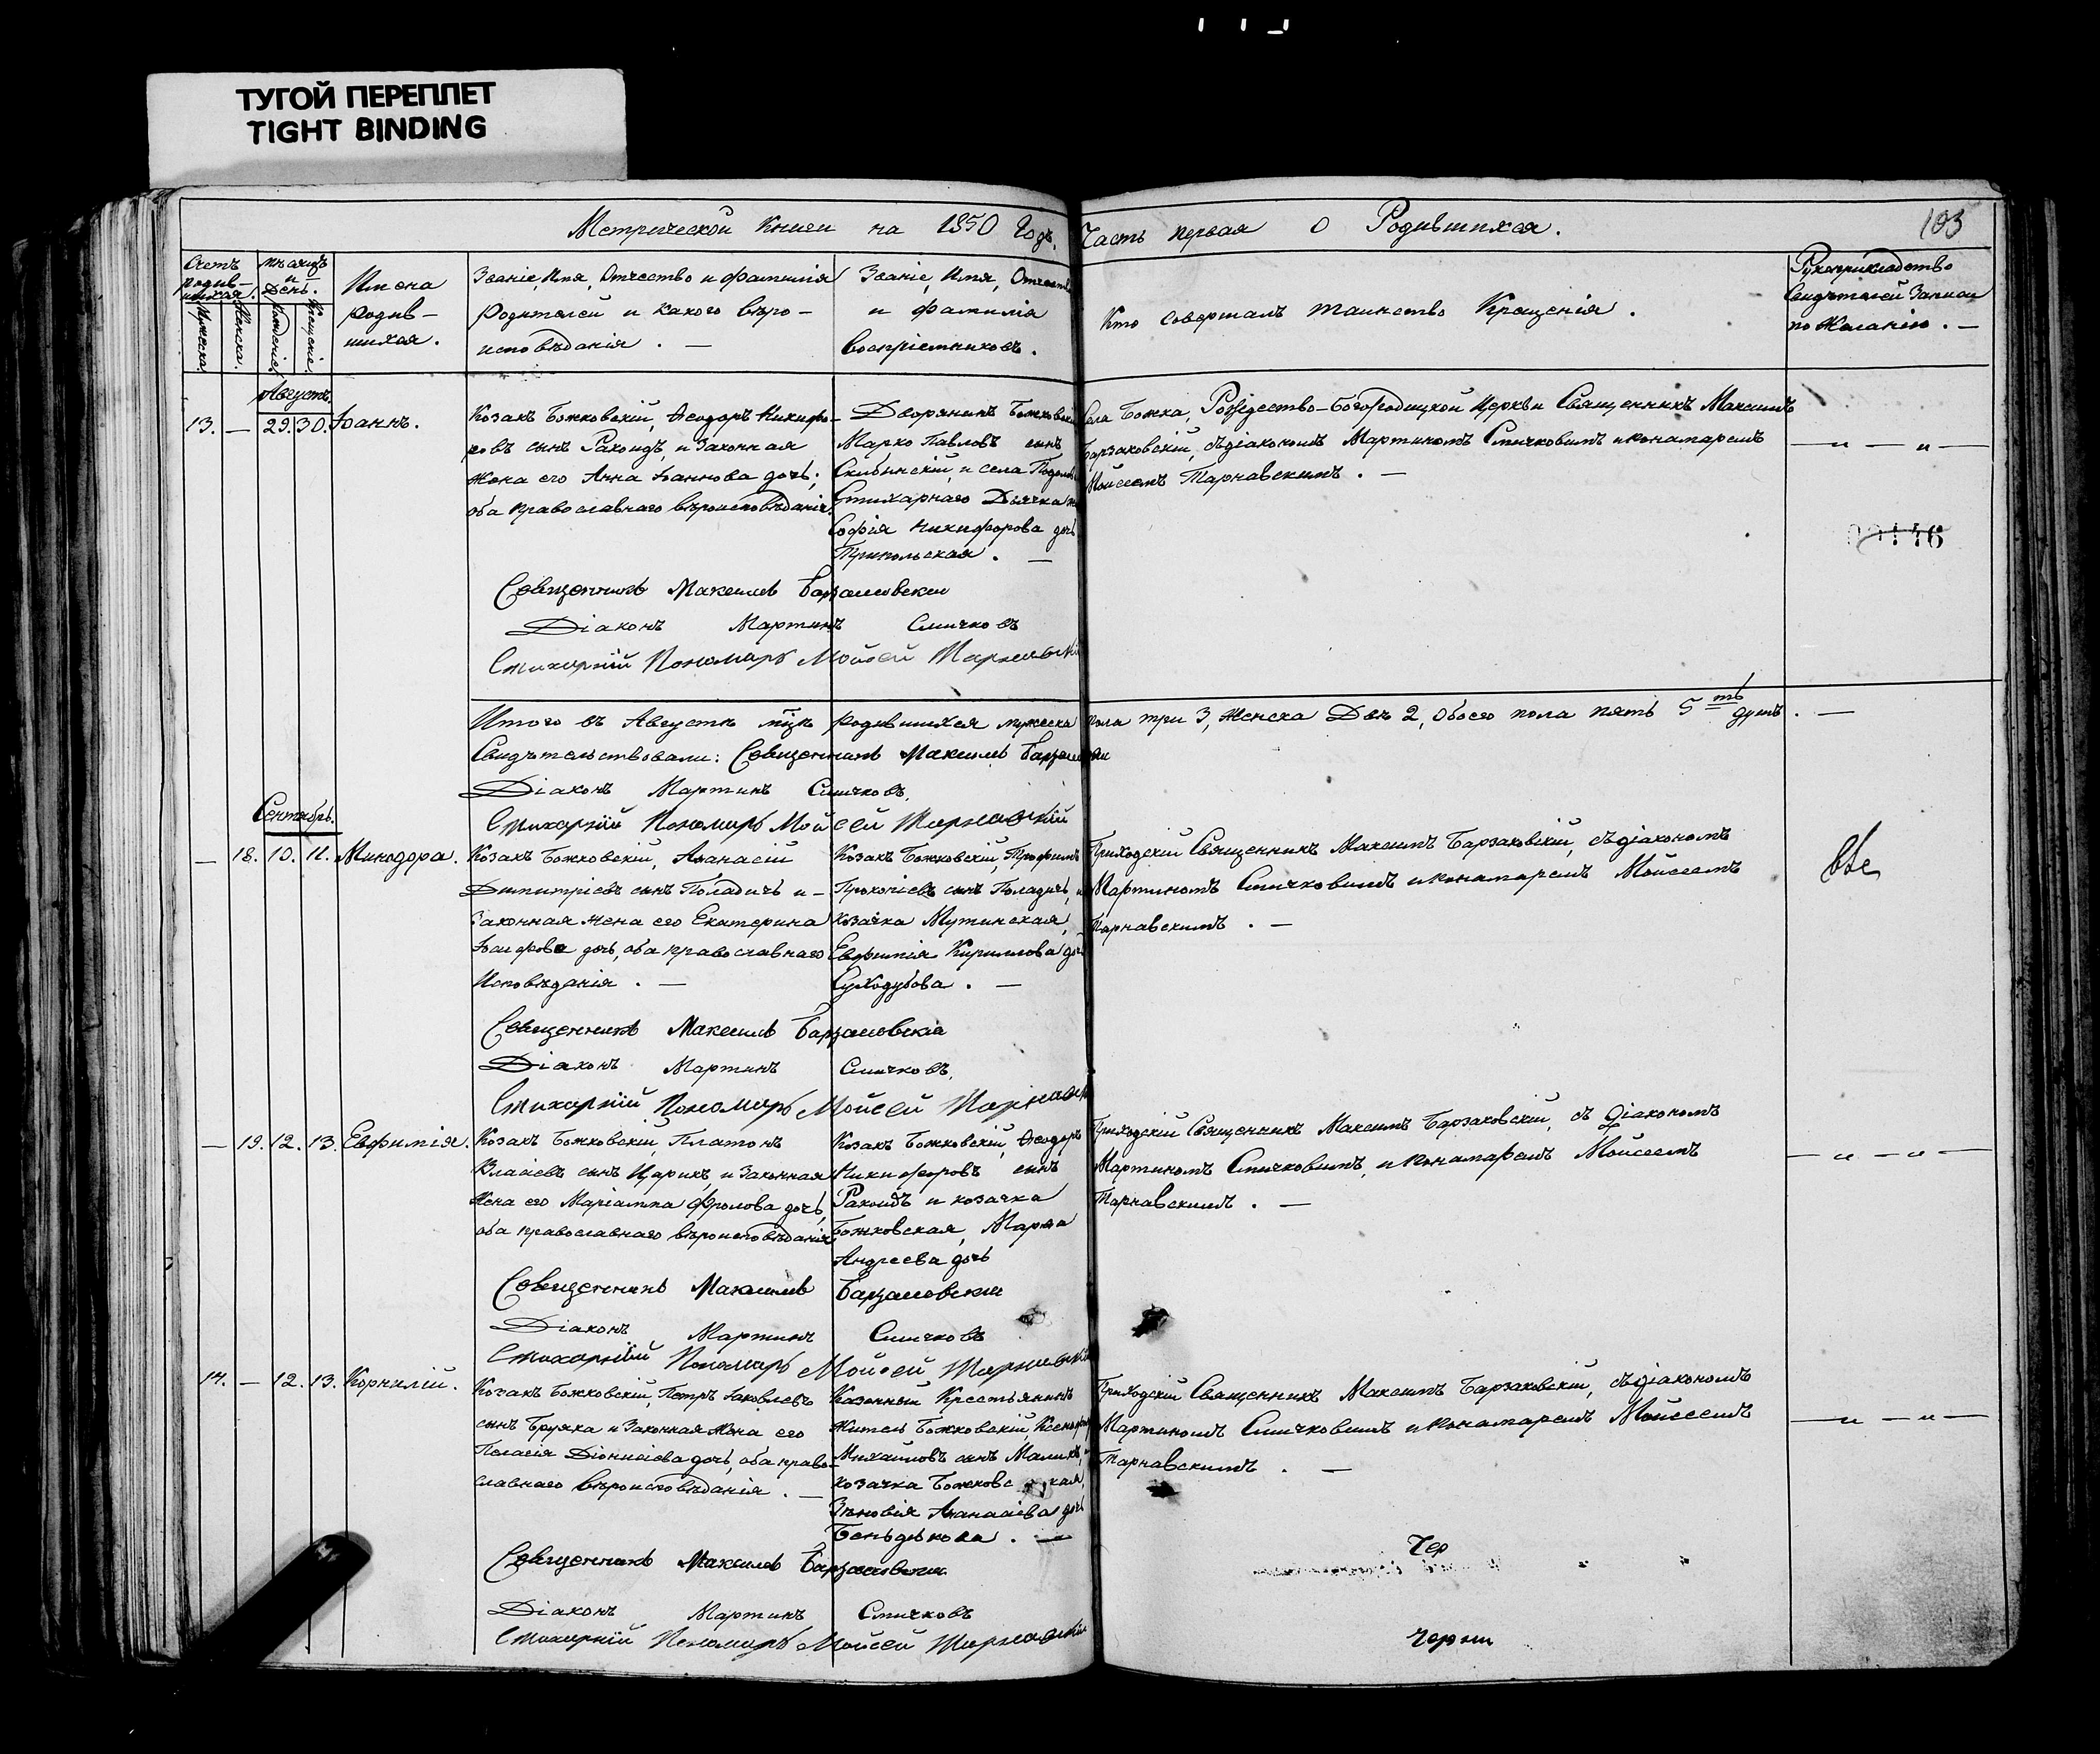 ТУГОЙ ПЕРЕПЛЕТ
TIGHT BINDING
Метрической Книги на 1850 Годъ, Часть первая о Родившихся. 103
Счетъ родив-шихся.
Мужеска. Женска.
Мѣсяцъ и День.
Рожденіе. Крещеніе.
Имена
родив-
шихся.
Званіе, Имя, Отчество и Фамилія
Родителей и какого вѣро-
исповѣданія. —
Званіе, Имя, Отчество
и Фамилія
воспріемниковъ.
Кто совершалъ таинство Крещенія.
Рукоприкладство
Свидѣтелей Записи
по Желанію. —
Августъ
13. — 29. 30. Іоаннъ.
Козакъ Божковскій, Ѳеодоръ Никифо-
ровъ сынъ Ракоидъ, и Законная
Жена его Анна Іоаннова дочь;
оба православнаго вѣроисповѣданія.
Дворянинъ Божковскій
Марко Павловъ сынъ
Скибинскій, и села
Стихарнаго Дьячка
Софія Никифорова дочь
Трипольская. —
Села Божка, Рождество-Богородицкой Церкви Священникъ Максимъ
Барзаковскій, съ діакономъ Мартиномъ Смичковымъ и понамаремъ
Мойсеемъ Тарнавскимъ. —
— „ — „ —
00146
Священникъ Максимъ Барзаковскій
Діаконъ Мартинъ Смичковъ
Стихарній Пономарь Мойсей Тарнавскій
Итого въ Августѣ мцѣ родившихся мужеска пола три 3, Женска Двѣ 2, Обоего пола пять 5ть душъ. —
Свидѣтельствовали: Священникъ Максимъ Барзаковскій
Діаконъ Мартинъ Смичковъ.
Стихарній Пономарь Мойсей Тарнавскій
Сентябрь.
— 18. 10. 11. Минодора.
Козакъ Божковскій, Аѳанасій
Димитріевъ сынъ Поладичъ и-
Законная Жена его Екатерина
дочь, оба православнаго
Исповѣданія. —
Козакъ Божковскій, Трофимъ
Прокопіевъ сынъ Поладичъ, и
козачка Мутинская,
Евфимія Кириллова дочь
Суходубова. —
Приходскій Священникъ Максимъ Барзаковскій, съ діакономъ
Мартиномъ Смичковымъ и понамаремъ Мойсеемъ
Тарнавскимъ. —
Священникъ Максимъ Барзаковскій
Діаконъ Мартинъ Смичковъ.
Стихарній Пономарь Мойсей Тарнавскій
— 19. 12. 13. Евфимія.
Козакъ Божковскій, Платонъ
Власіевъ сынъ Царикъ, и Законная
Жена его Маріамна Фролова дочь,
оба православнаго вѣроисповѣданія
Козакъ Божковскій, Ѳеодоръ
Никифоровъ сынъ
Ракоидъ и козачка
Божковская, Марѳа
Андреева дочь
Приходскій Священникъ Максимъ Барзаковскій, съ Діакономъ
Мартиномъ Смичковымъ, и понамаремъ Мойсеемъ
Тарнавскимъ. —
— „ — „ —
Священникъ Максимъ Барзаковскій
Діаконъ Мартинъ Смичковъ
Стихарній Пономарь Мойсей Тарнавскій
14. — 12. 13. Корнилій.
Козакъ Божковскій, Петръ Іаковлевъ
сынъ Бруяка и Законная Жена его
Пелагія Діонисіева дочь, оба право-
славнаго вѣроисповѣданія. —
Казенный Крестьянинъ
Житель Божковскій,
Михаиловъ сынъ Маликъ,
козачка Божковская,
Зѣновія Аѳанасіева дочь
Беньдькова. —
Приходскій Священникъ Максимъ Барзаковскій, съ діакономъ
Мартиномъ Смичковымъ и понамаремъ Мойсеемъ
Тарнавскимъ. —
— „ — „ —
Священникъ Максимъ Барзаковскій
Діаконъ Мартинъ Смичковъ
Стихарній Пономарь Мойсей Тарнавскій
Чер